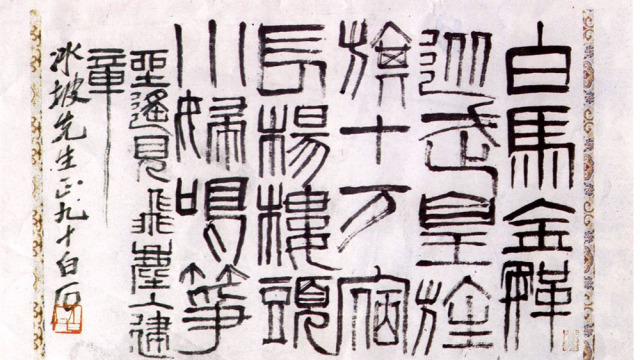 白馬金鞍
從武皇旌
旗十万宿
長楊樓頭
小婦鳴箏
坐遙見飛塵入建
章
冰坡先生正九十白石